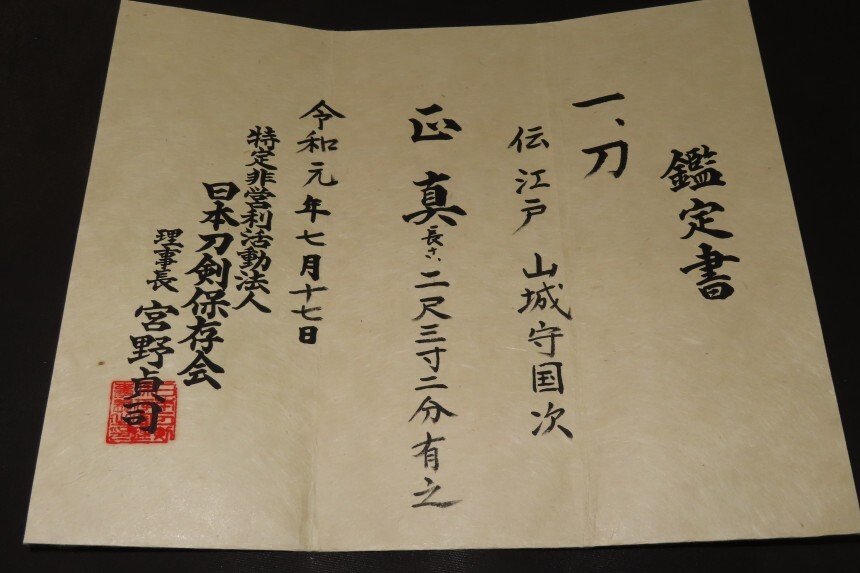 鑑定書
一、刀
伝江戸 山城守国次
正真 長さ、二尺三寸二分有之
令和元年七月十七日
特定非営利活動法人
日本刀剣保存会
理事長 宮野貞司